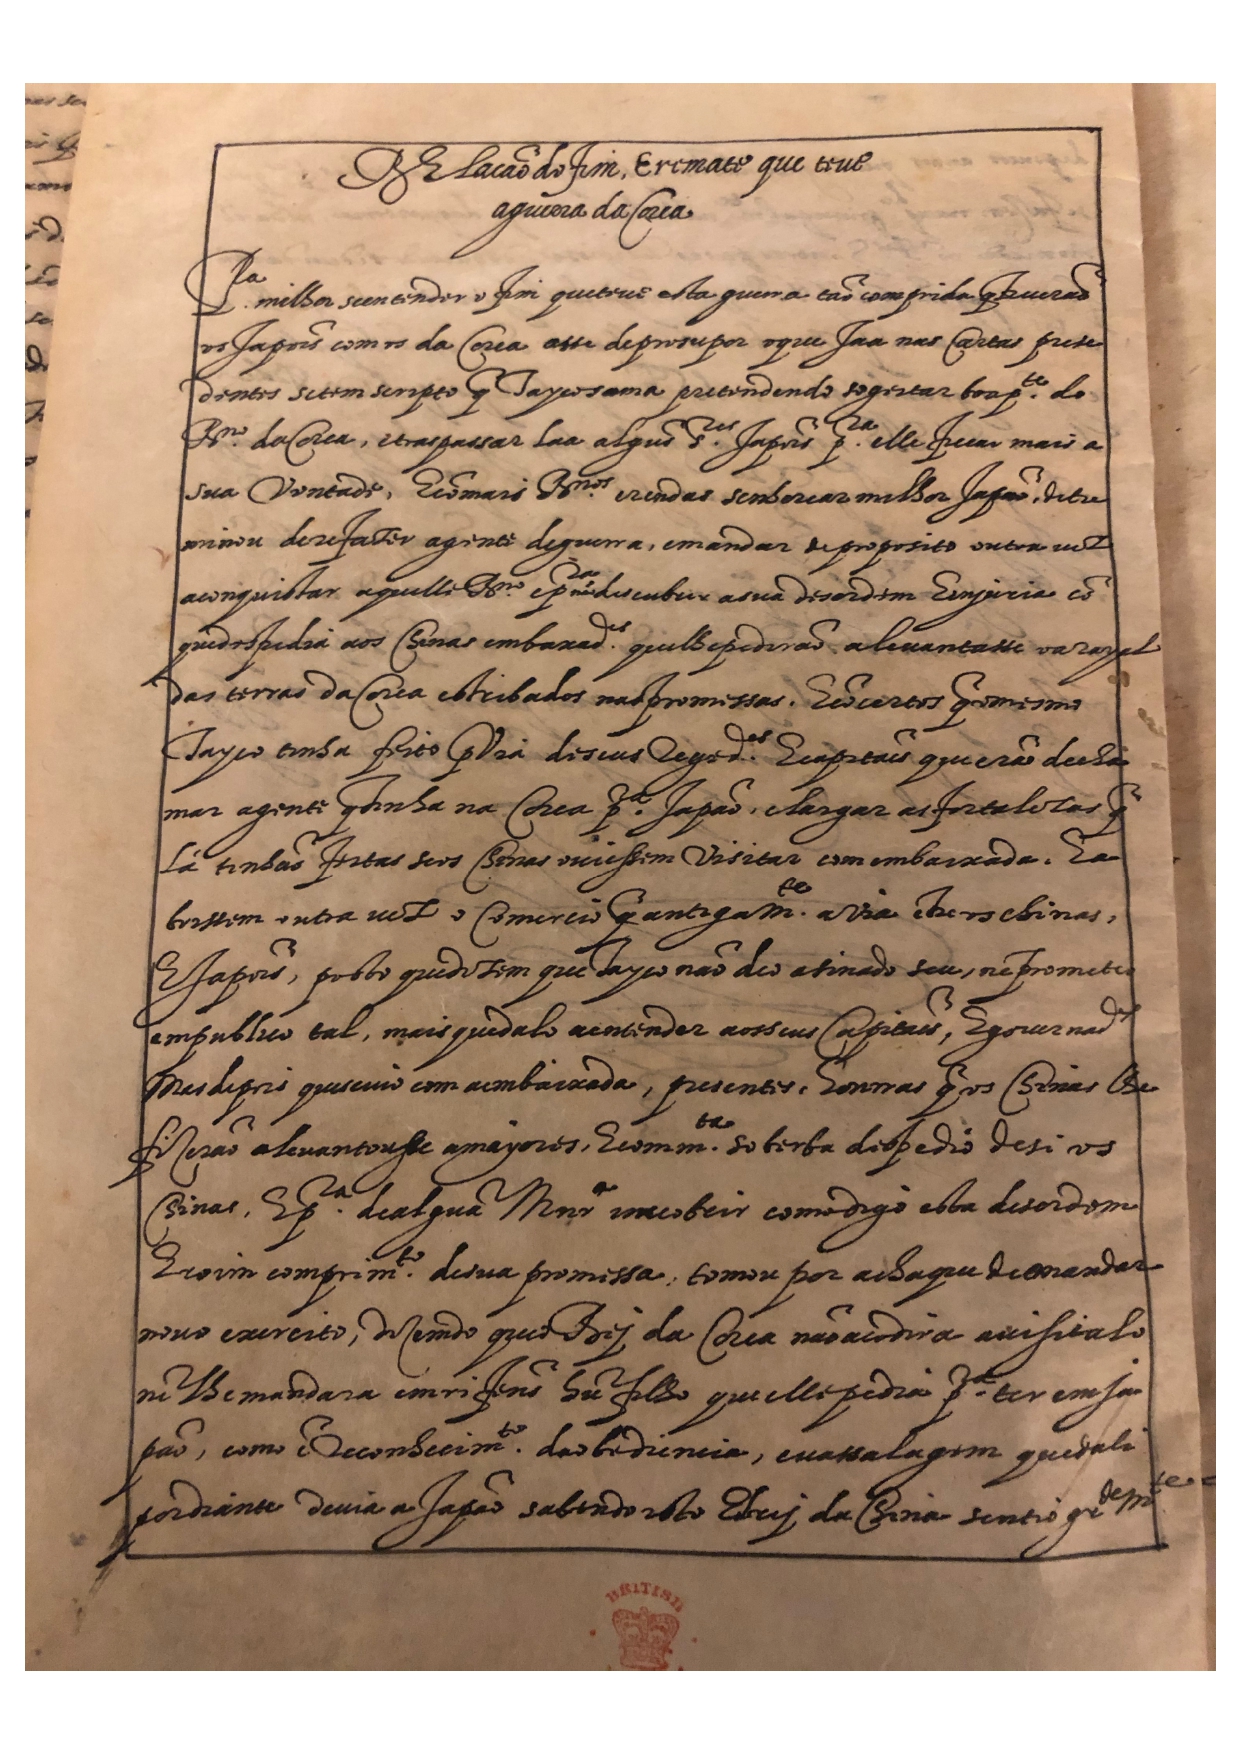 RElacaõ do fim, E remate que teve
aguerra da Corea
P.ra milhor seentender o fim queteve esta guerra taõ comprida q̃ tiveraõ
os Japois com os da Corea asse depresupor oque Jaa nas Cartas prese
dentes setem scripto q̃ Taycosama pretendendo sogeitar boa p.te do
Rn.o da Corea, e traspassar laa alguns s.res Japois p.ra elle ficar mais a
sua Vontade, E cõ mais Rn.os e rendas senhorear milhor Japaõ, detre
minou derefazer agente deguerra, emandar de proposito outra vez
aconquistar aquelle Rn.o e p.ra descubrir asua desordem E injuria cõ
quedespedia aos Chinas embaxad.es quelhepediraõ alevantasse
das terras da Corea estribados nas promessas. E cõcertos q̃ omesmo
Tayco tinha feito por Via deseus Reged.es E capitais que eraõ decha
mar agente q̃ tinha na Corea p.ra Japaõ, elargar asfortalezas q̃
Lá tinhaõ feitas seos Chinas oviessem Visitar com embaixada. E a
brissem outra vez o Comercio q̃ antigam.te avia etre os chinas,
E Japois, posto quedizem que Tayco naõ deo asinado seu, nẽ prometeo
empublico tal, mais quedalo aentender aosseus Capitais, E governad.es
Mas depois quesevio com aembaixada, presentes, E onrras q̃ os Chinas lhe
fizeraõ alevantousse amayores, E com m.ta soberba despedio desi os
Chinas, E p.ra dealguã Mnr.a encobrir comodigo esta desordem
E roim comprim.to desua promessa, tomou por achaque demandar
novo exercito, dizendo queo Rej da Corea naõ acodira avisitalo
nẽ lhemandara emrifens hũ filho queellepedia p.ra ter em Ja
paõ, como ẽ Reconhecim.to daobediencia, evassalagem quedali
pordiante devia a Japaõ sabendo isto Elrej da China sentio gr.dem.te
BRITISH